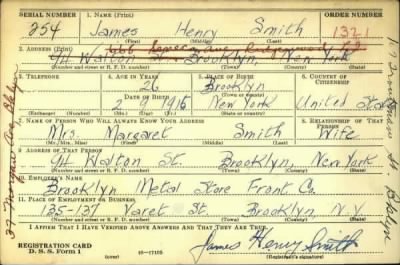 SERIAL NUMBER 1. NAME (Print) ORDER NUMBER
254 James Henry Smith 1321
(First) (Middle) (Last)
2. ADDRESS (Print)
94 Walton St. Brooklyn, New York
(Number and street or R. F. D. number) (Town) (County) (State)
3. TELEPHONE 4. AGE IN YEARS 5. PLACE OF BIRTH 6. COUNTRY OF CITIZENSHIP
26 Brooklyn
DATE OF BIRTH (Town or county)
2 1916 New York United States
(Exchange) (Number) (Mo.) (Day) (Yr.) (State or country)
7. NAME OF PERSON WHO WILL ALWAYS KNOW YOUR ADDRESS 8. RELATIONSHIP OF THAT PERSON
Mrs. Margaret Smith Wife
(Mr., Mrs., Miss) (First) (Middle) (Last)
9. ADDRESS OF THAT PERSON
94 Walton St. Brooklyn, New York
(Number and street or R. F. D. number) (Town) (County) (State)
10. EMPLOYER'S NAME
Brooklyn Metal Store Front Co.
11. PLACE OF EMPLOYMENT OR BUSINESS
135-137 Varet St. Brooklyn, N.Y.
(Number and street or R. F. D. number) (Town) (County) (State)
I AFFIRM THAT I HAVE VERIFIED ABOVE ANSWERS AND THAT THEY ARE TRUE.
REGISTRATION CARD
D. S. S. Form 1 16-17105 James Henry Smith
(Registrant's signature)